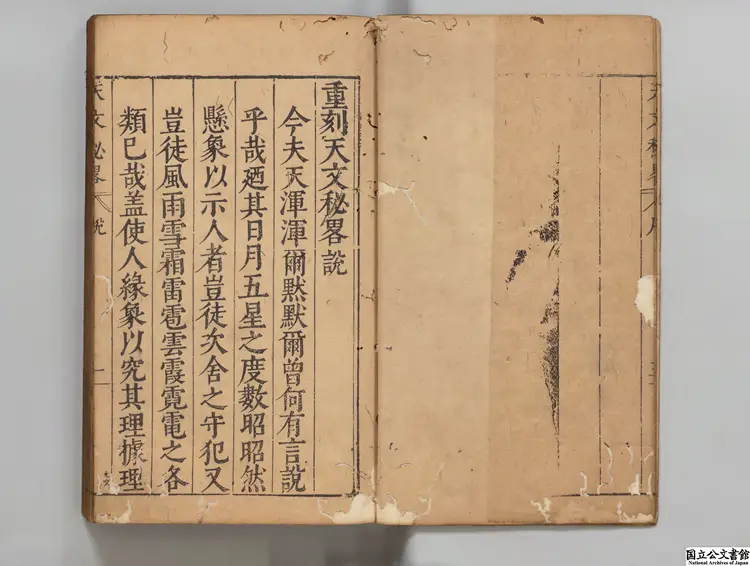 重刻天文秘畧說
今夫天渾渾爾黙黙爾曾何有言說
乎哉廼其日月五星之度數昭昭然
懸象以示人者豈徒次舍之守犯又
豈徒風雨雪霜雷雹雲霞霓電之各
類已哉盖使人緣象以究其理據理
天文秘畧 說 一
国立公文書館
National Archives of Japan